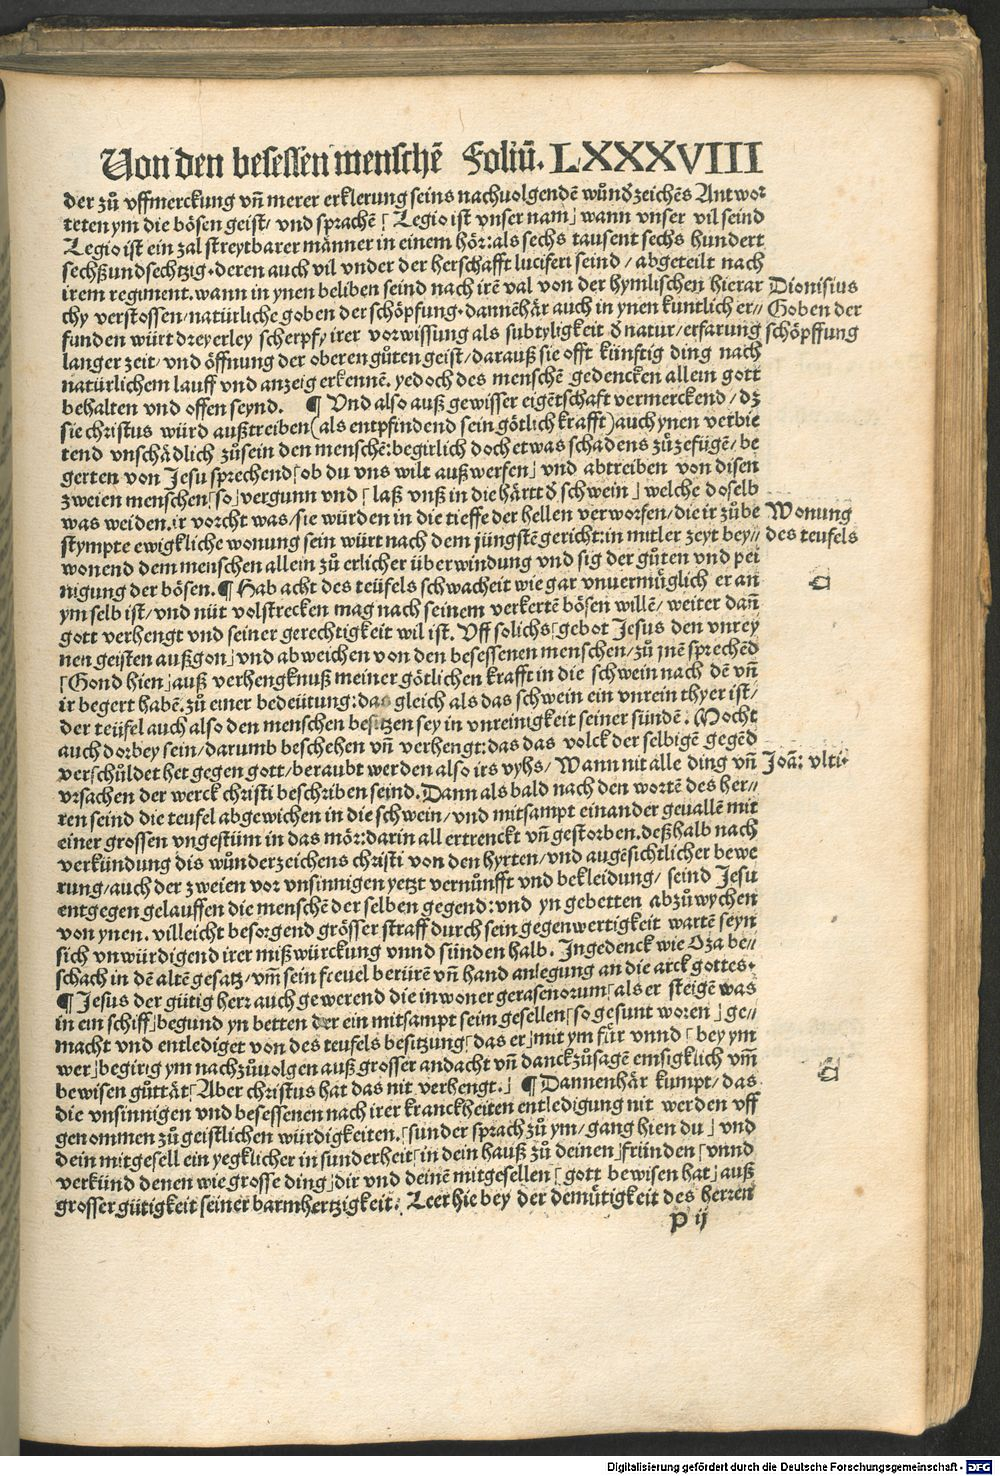 Von den besessen menschē Foliū. LXXXVIII
der zů vffmerckung vn̄ merer erklerung seins nachuolgendē wūnd̕zeichēs Antwor
teten ym die bösen geist/ vnd sprachē ⌈Legio ist vnser nam⌋ wann vnser vil seind
Legio ist ein zal streytbarer männer in einem hör: als sechs tausent sechs hundert
sechßundsechtzig. deren auch vil vnder der herschafft luciferi seind / abgeteilt nach
irem regiment. wann in ynen beliben seind nach irē val von der hymlischen hierar
chy verstossen/ natürliche goben der schöpfung. dannēhär auch in ynen kuntlich er//
funden würt dreyerley scherpf/ irer vorwissung als subtyligkeit d̕ natur/ erfarung
langer zeit/ vnd öffnung der oberen gůten geist/ darauß sie offt künftig ding nach
natürlichem lauff vnd anzeig erkennē. yedoch des menschē gedencken allein gott
behalten vnd offen seynd. ¶ Vnd also auß gewisser eigētschaft vermerckend / dz
sie christus würd außtreiben (als entpfindend sein götlich krafft) auch ynen verbie
tend vnschädlich zůsein den menschē: begirlich doch etwas schadens zůzefügen/ be
gerten von Jesu sprechend ⌈ob du vns wilt außwerfen⌋ vnd abtreiben von disen
zweien menschen ⌈so⌋ vergunn vnd ⌈laß vnß in die härtt d̕ schwein⌋ welche doselb
was weiden. ir vorcht was/ sie würden in die tieffe der hellen verworfen/ die ir zůbe
stympte ewigkliche wonung sein würt nach dem jüngstē gericht: in mitler zeyt bey//
wonend dem menschen allein zů erlicher überwindung vnd sig der gůten vnd pei
nigung der bösen. ¶ Hab acht des teüfels schwacheit wie gar vnuermüglich er an
ym selb ist/ vnd nüt volstrecken mag nach seinem verkertē bösen willē/ weiter dan̄
gott verhengt vnd seiner gerechtigkeit wil ist. Vff solichs ⌈gebot Jesus den vnrey
nen geisten außgon⌋ vnd abweichen von den besessenen menschen/ zů jnē sprechēd
⌈Gond hien⌋ auß verhengknuß meiner götlichen krafft in die schwein nach dē vn̄
ir begert habē. zů einer bedeütung: das gleich als das schwein ein vnrein thyer ist/
der teüfel auch also den menschen besitzen sey in vnreinigkeit seiner sündē. Mocht
auch dorbey sein/ darumb beschehen vn̄ verhengt: das das volck der selbigē gegēd
verschůldet het gegen gott/ beraubt werden also irs vyhs/ Wann nit alle ding vn̄
vrsachen der werck christi beschriben seind. Dann als bald nach den wortē des her//
ren seind die teufel abgewichen in die schwein/ vnd mitsampt einander geuallē mit
einer grossen vngestüm in das mör: darin all ertrenckt vn̄ gestorben. deßhalb nach
verkündung dis wůnderzeichens christi von den hyrten/ vnd augēsichtlicher bewe
rung/ auch der zweien vor vnsinnigen yetzt vernůnfft vnd bekleidung/ seind Jesu
entgegen gelauffen die menschē der selben gegend: vnd yn gebetten abzůwychen
von ynen. villeicht besorgend grösser straff durch sein gegenwertigkeit wartē seyn
sich vnwürdigend irer mißwürckung vnnd sünden halb. Ingedenck wie Oza be//
schach in dē altē gesatz/ vm̄ sein freuel berürē vn̄ hand anlegung an die arck gottes.
¶ Jesus der gütig herr auch gewerend die inwoner gerasenorum ⌈als er steigē was
in ein schiff⌋ begund yn betten der ein mitsampt seim gesellen ⌈so gesunt woren⌋ ge//
macht vnd entlediget von des teufels besitzung ⌈das er⌋ mit ym für vnnd ⌈bey ym
wer⌋ begirig ym nachzůuolgen auß grosser andacht vn̄ danckzůsagē emsigklich vm̄
bewisen gůttät ⌈Aber christus hat das nit verhengt.⌋ ¶ Dannenhär kumpt/ das
die vnsinnigen vnd besessenen nach irer kranckheiten entledigung nit werden vff
genommen zů geistlichen würdigkeiten. ⌈sunder sprach zů ym/ gang hien du⌋ vnd
dein mitgesell ein yegklicher in sunderheit ⌈in dein hauß zů deinen⌋ fründen ⌈vnnd
verkünd denen wie grosse ding⌋ dir vnd deinē mitgesellen ⌈gott bewisen hat⌋ auß
grosser gütigkeit seiner barmhertzigkeit. Leer hie bey der demütigkeit des herren
p ij
Dionisius
Goben der
schöpffung
Wonung
des teufels
Joā: vlti.
Digitalisierung gefördert durch die Deutsche Forschungsgemeinschaft - DFG